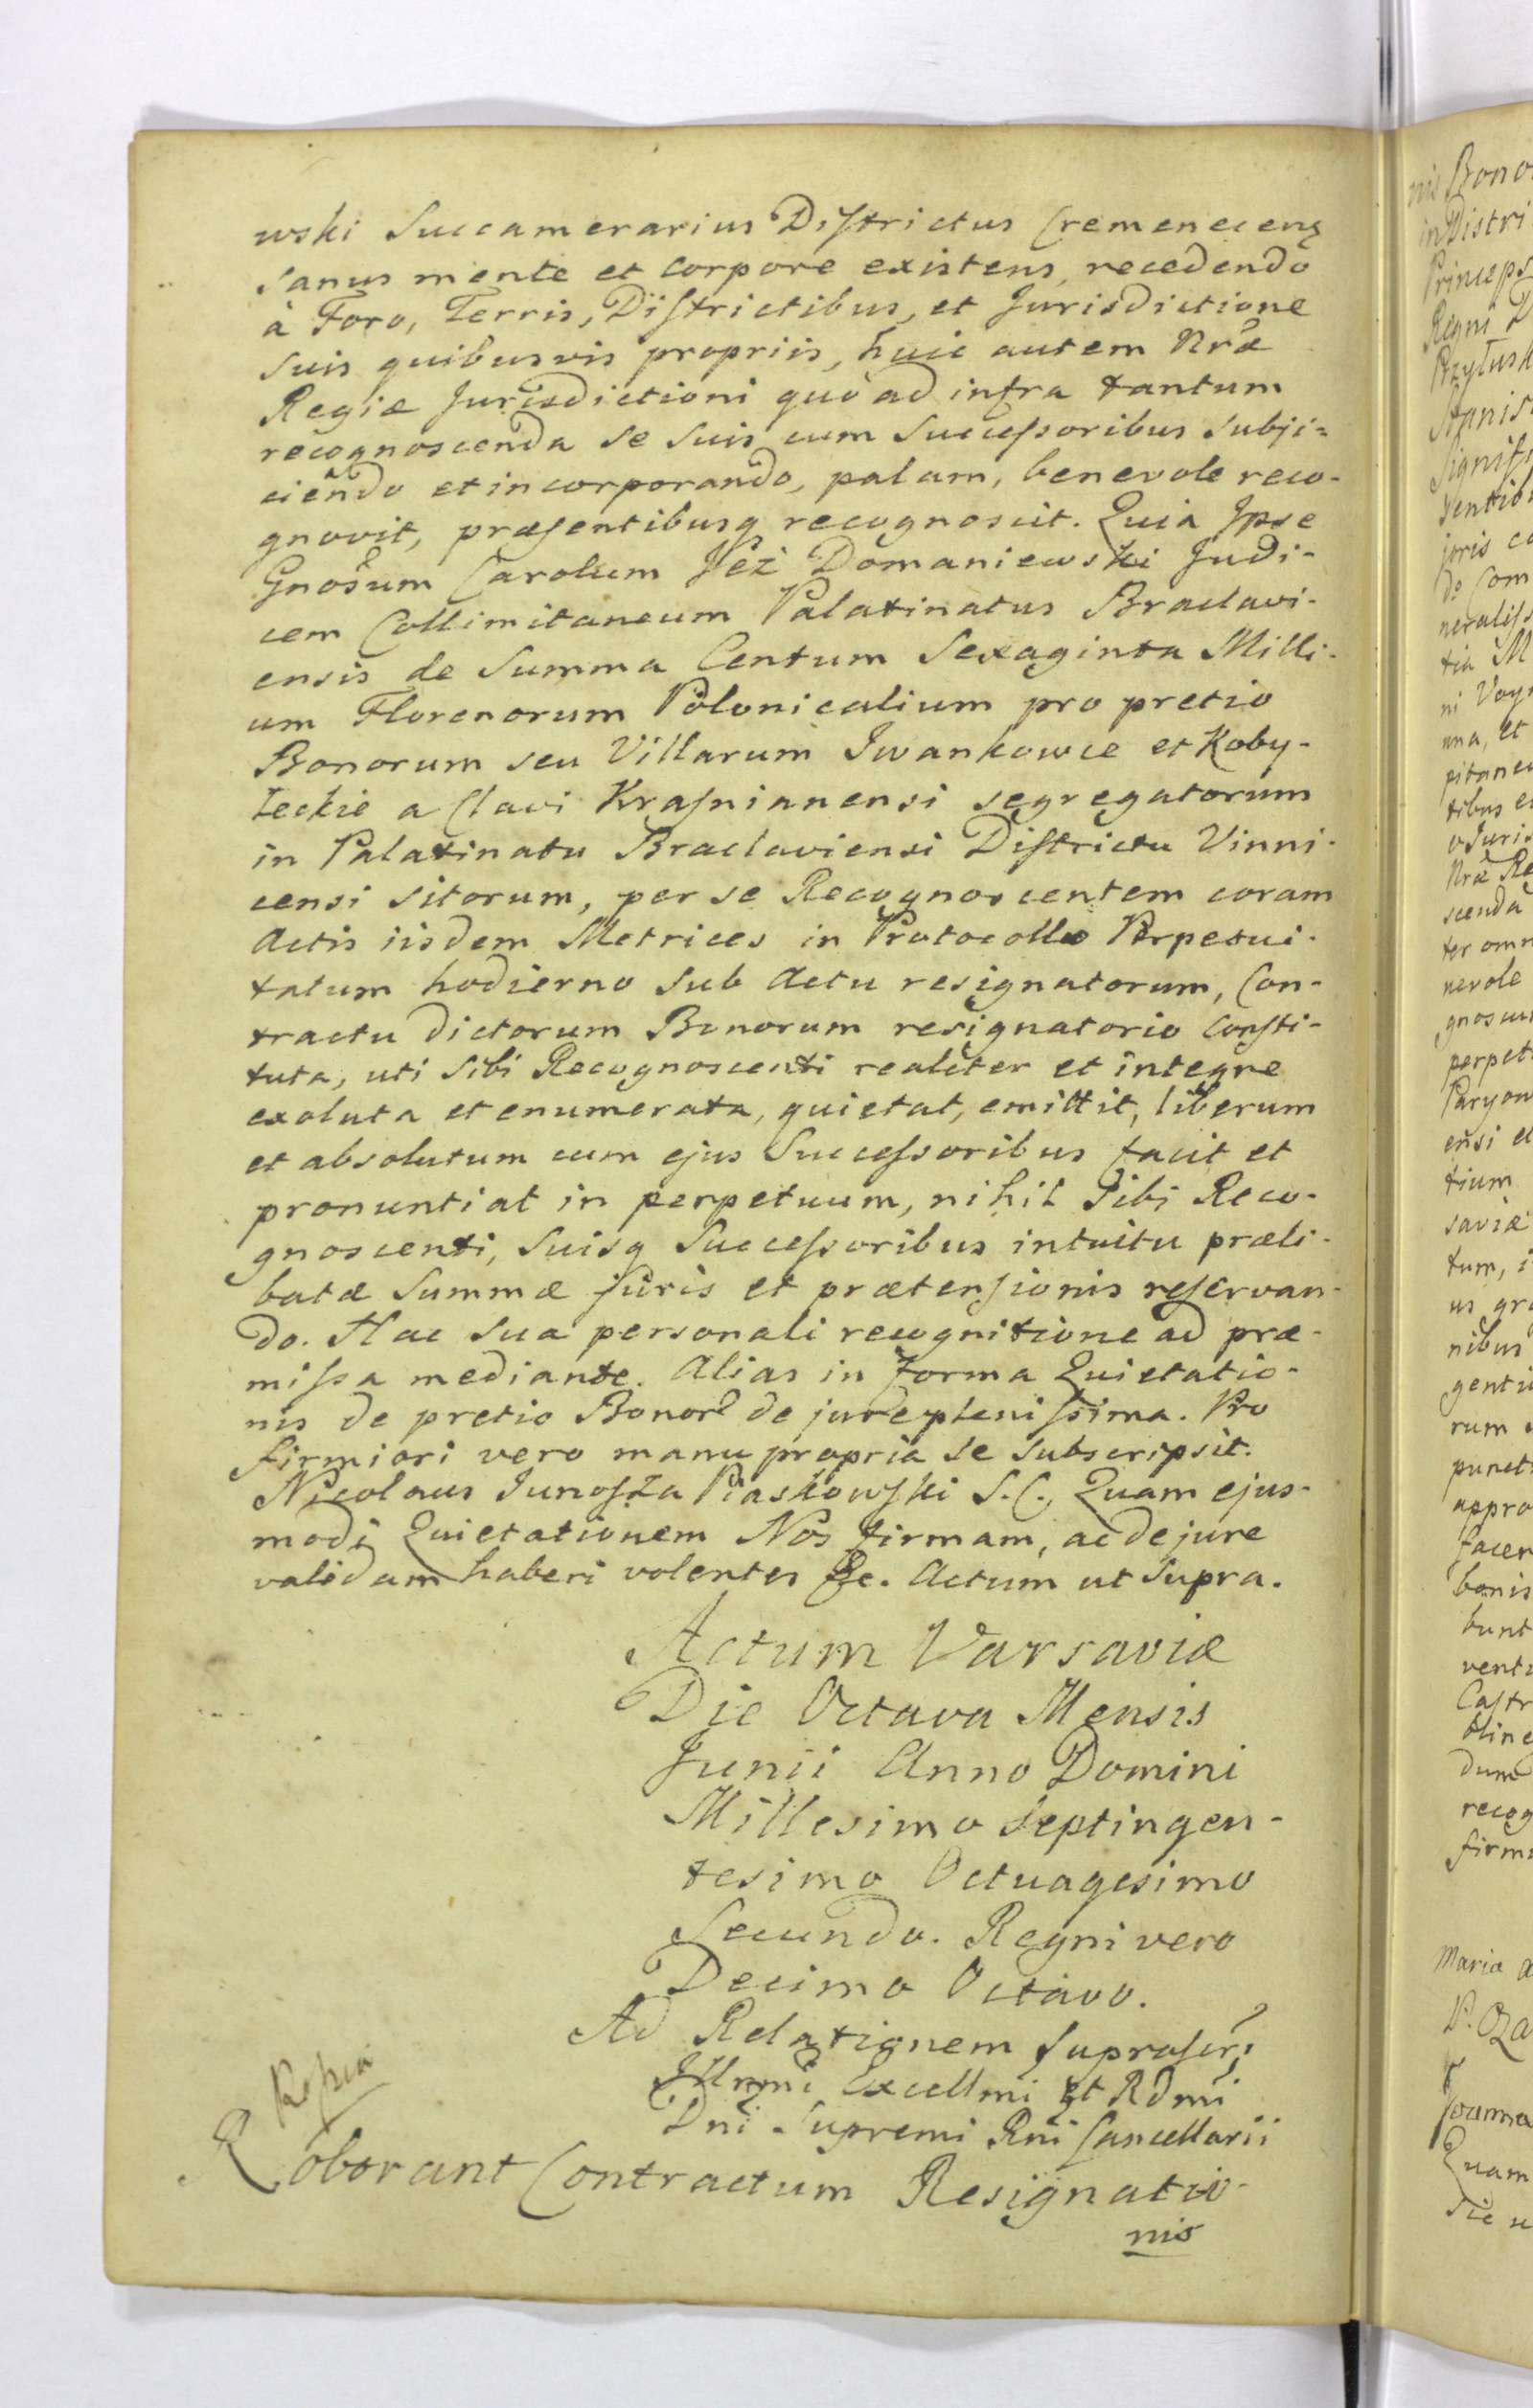 wski Succamerarius Districtus Cremeneceng
sanus mente et corpore existens, recedendo
à Foro, Terris, Districtibus, et Jurisdictione
suis quibusvis propriis, huic autem Nræ
Regiæ Jurisdictioni quò ad infra tantum
recognoscenda se suis cum Successoribus subji=
ciendo et incorporando, palam, benevole reco-
gnovit, præsentibusq recognoscit. Quia Ipse
Gnosum Carolum Jeż Domaniewski Judi-
cem Collimitaneum Palatinatus Braclavi-
ensis de Summa Centum Sexaginta Milli-
um Florenorum Polonicalium pro pretio
Bonorum seu Villarum Iwankowce et Koby-
leckie a Clavi Krasnianensi segregatorum
in Palatinatu Braclaviensi Districtu Vinni-
censi sitorum, per se Recognoscentem coram
Actis iisdem Metrices in Protocollo Perpetui-
tatum hodierno sub Actu resignatorum, Con-
tractu dictorum Bonorum resignatorio consti-
tuta, uti sibi Recognoscenti realiter et integre
exoluta et enumerata, quietat, emittit, liberum
et absolutum cum ejus Successoribus facit et
pronuntiat in perpetuum, nihil sibi Reco-
gnoscenti, suisq Successoribus intuitu præli-
batæ Summæ juris et prætensionis reservan-
do. Hac sua personali recognitione ad præ-
missa mediante. Alias in forma Quietatio-
nis de pretio Bonor de jure plenissima. Pro
firmiori vero manu propria se subscripsit.
Nicolaus Junosza Piaskowski S.C., Quam ejus-
modi Quietationem Nos firmam, ac de jure
validam haberi volentes &c. Actum ut supra.
Actum Varsaviæ
Die Octava Mensis
Junii Anno Domini
Millesimo Septingen-
tesimo Octuagesimo
Secundo. Regni vero
Decimo Octavo.
Ad Relationem suprascri
Illrmi Excellmi et Rdmi
Dni Supremi Rni Cancellarii
Kopia
Roborant Contractum Resignatio-
nis